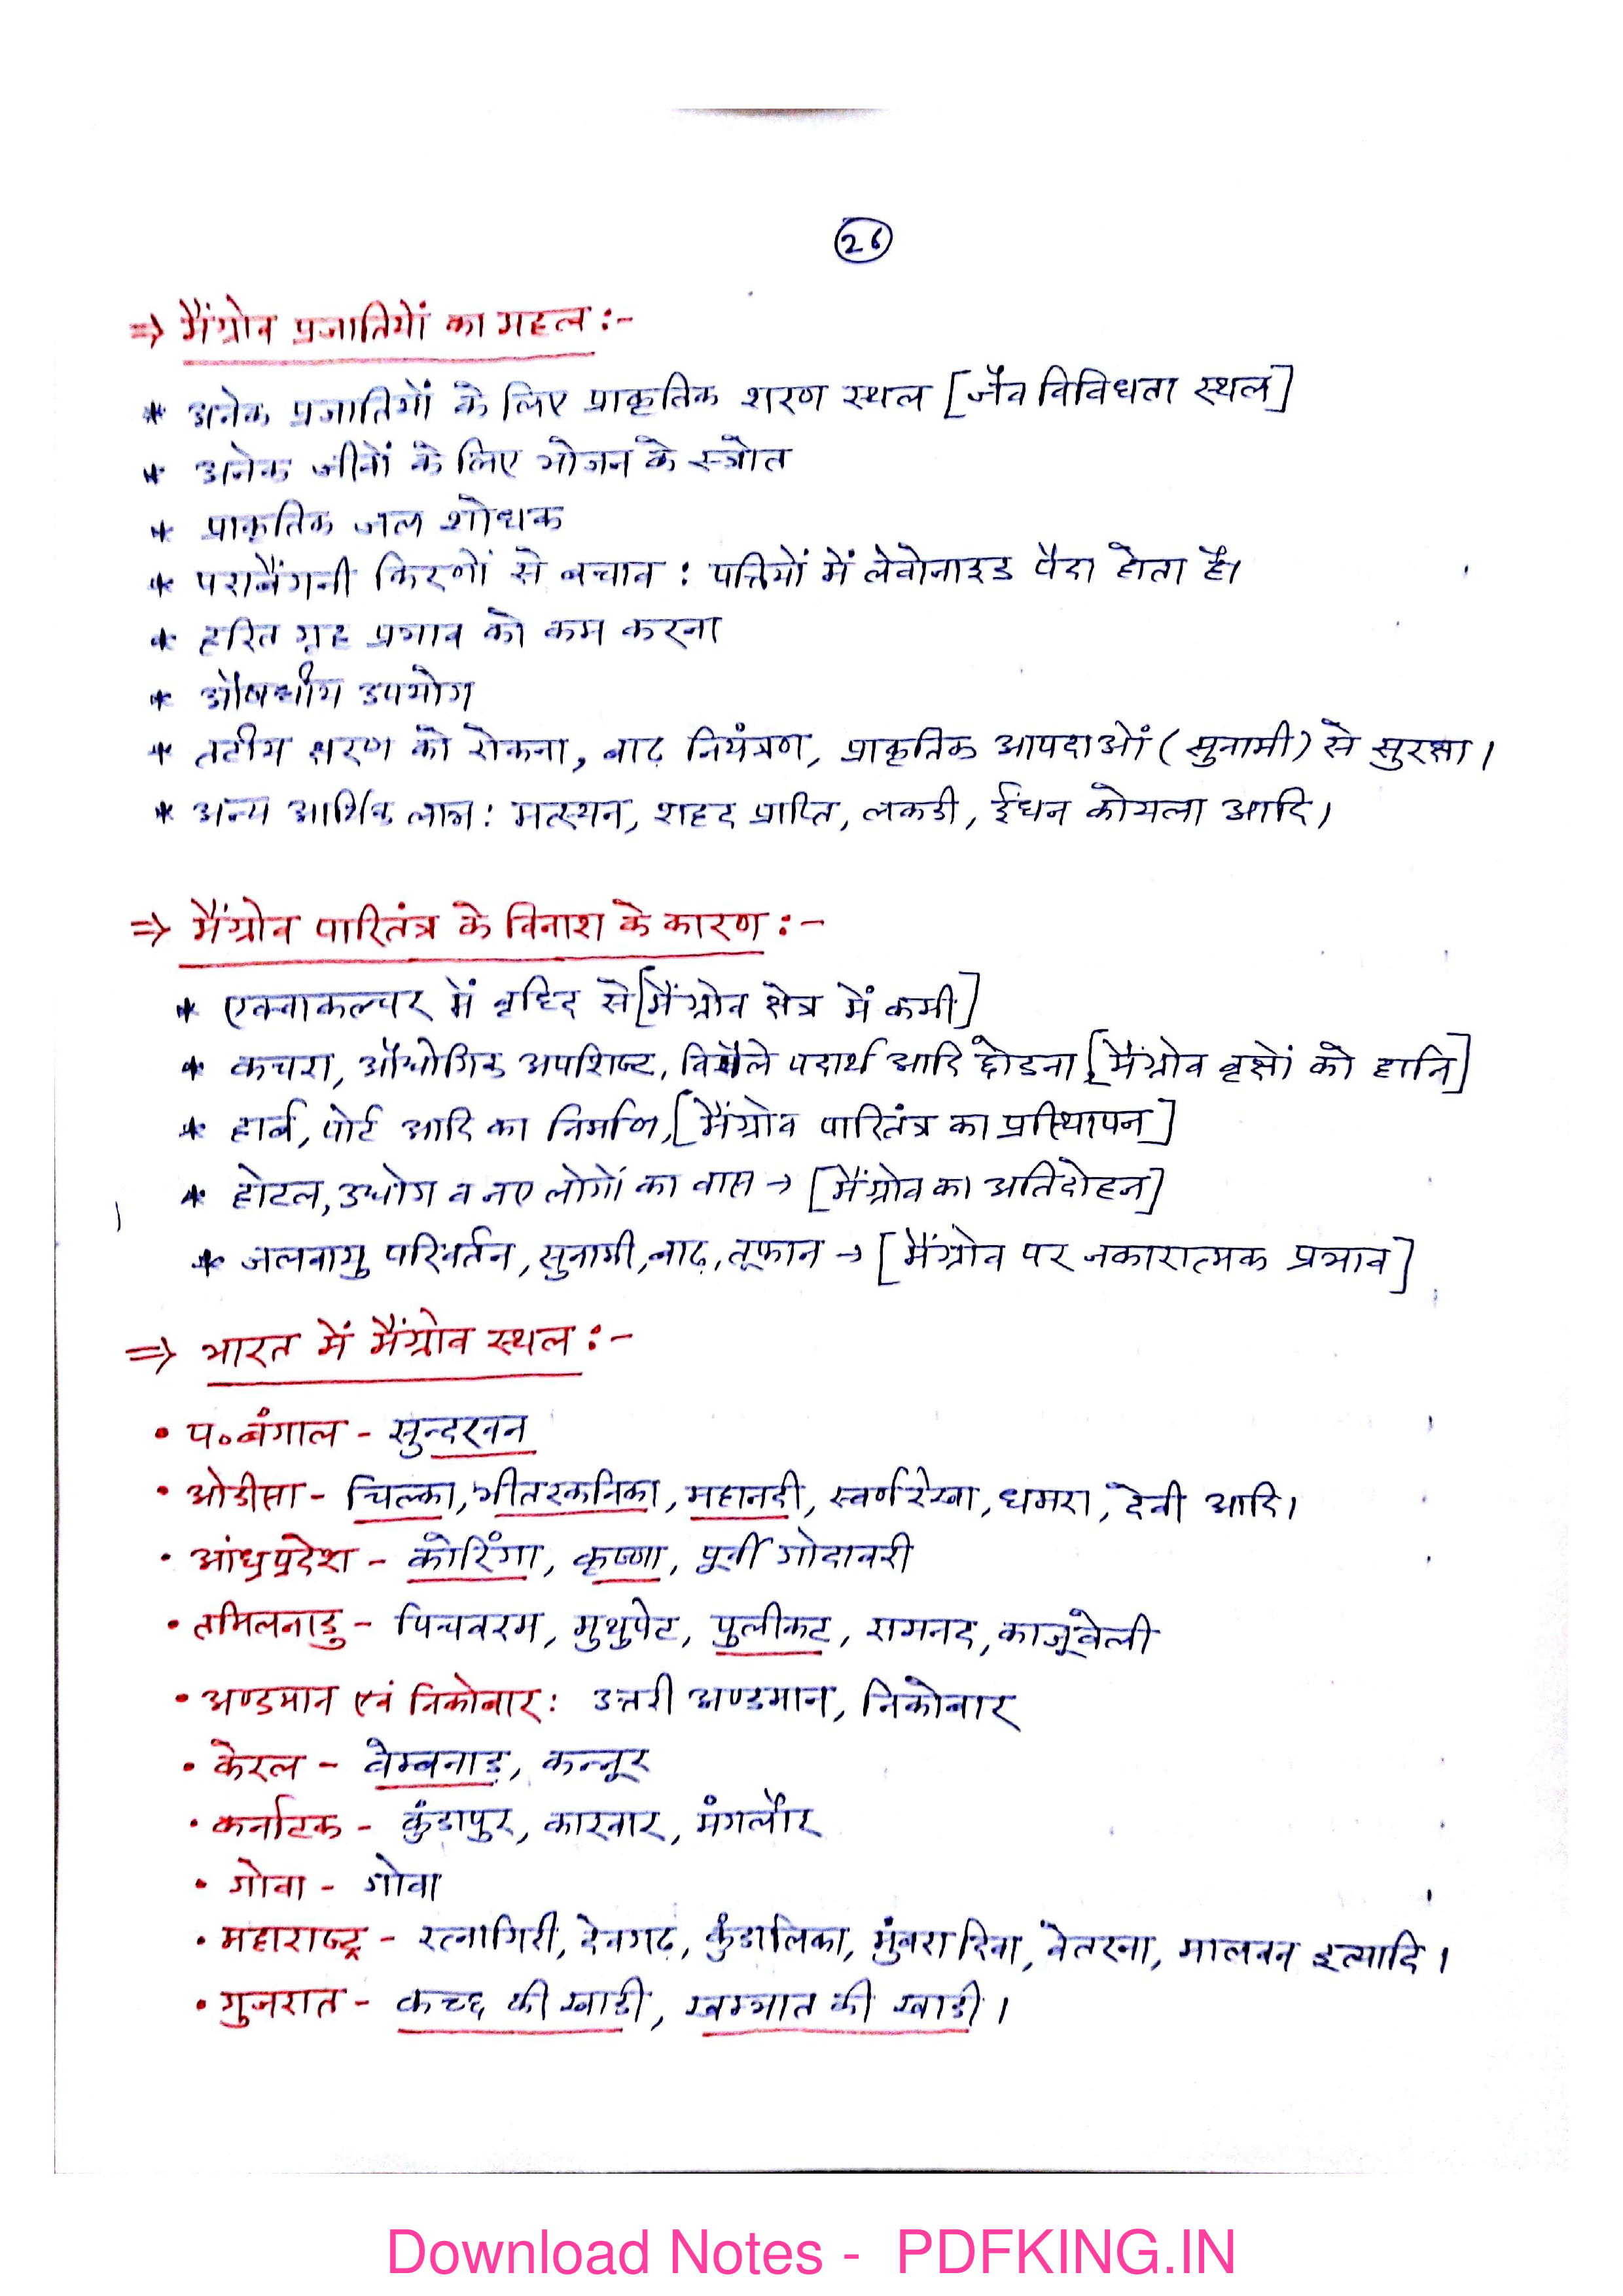 26
⇒ मैंग्रोव प्रजातियों का महत्व :-
* अनेक प्रजातियों के लिए प्राकृतिक शरण स्थल [जैव विविधता स्थल]
* अनेक जीवों के लिए भोजन के स्त्रोत
* प्राकृतिक जल शोधक
* पराबैंगनी किरणों से बचाव : पत्तियों में लेवोनाइड पैदा होता है।
* हरित गृह प्रभाव को कम करना
* औषधीय उपयोग
* तटीय क्षरण को रोकना, बाढ़ नियंत्रण, प्राकृतिक आपदाओं (सुनामी) से सुरक्षा।
* अन्य आर्थिक लाभ : मत्स्यन, शहद प्राप्ति, लकडी, ईंधन कोयला आदि।
⇒ मैंग्रोव पारितंत्र के विनाश के कारण :-
* एक्वाकल्चर में वृद्धि से [मैंग्रोव क्षेत्र में कमी]
* कचरा, औद्योगिक अपशिष्ट, विषैले पदार्थ आदि छोडना [मैंग्रोव वृक्षों को हानि]
* हार्ब, पोर्ट आदि का निर्माण, [मैंग्रोव पारितंत्र का प्रस्थापन]
* होटल, उद्योग व नए लोगों का वास → [मैंग्रोव का अतिदोहन]
* जलवायु परिवर्तन, सुनामी, बाढ़, तूफान → [मैंग्रोव पर नकारात्मक प्रभाव]
⇒ भारत में मैंग्रोव स्थल :-
• प॰ बंगाल - सुन्दरवन
• ओडीसा - चिल्का, भीतरकनिका, महानदी, स्वर्णरेखा, धमरा, देवी आदि।
• आंध्रप्रदेश - कोरिंगा, कृष्णा, पूर्वी गोदावरी
• तमिलनाडु - पिचवरम, मुथुपेट, पुलीकट, रामनद, काजूवेली
• अण्डमान एवं निकोबार : उत्तरी अण्डमान, निकोबार
• केरल - वेम्बनाड़, कन्नूर
• कर्नाटक - कुंडापुर, कारवार, मंगलौर
• गोवा - गोवा
• महाराष्ट्र - रत्नागिरी, देवगढ़, कुंडालिका, मुंबरा दिवा, वेतरना, मालवन इत्यादि।
• गुजरात - कच्छ की खाडी, खम्भात की खाडी।
Download Notes - PDFKING.IN